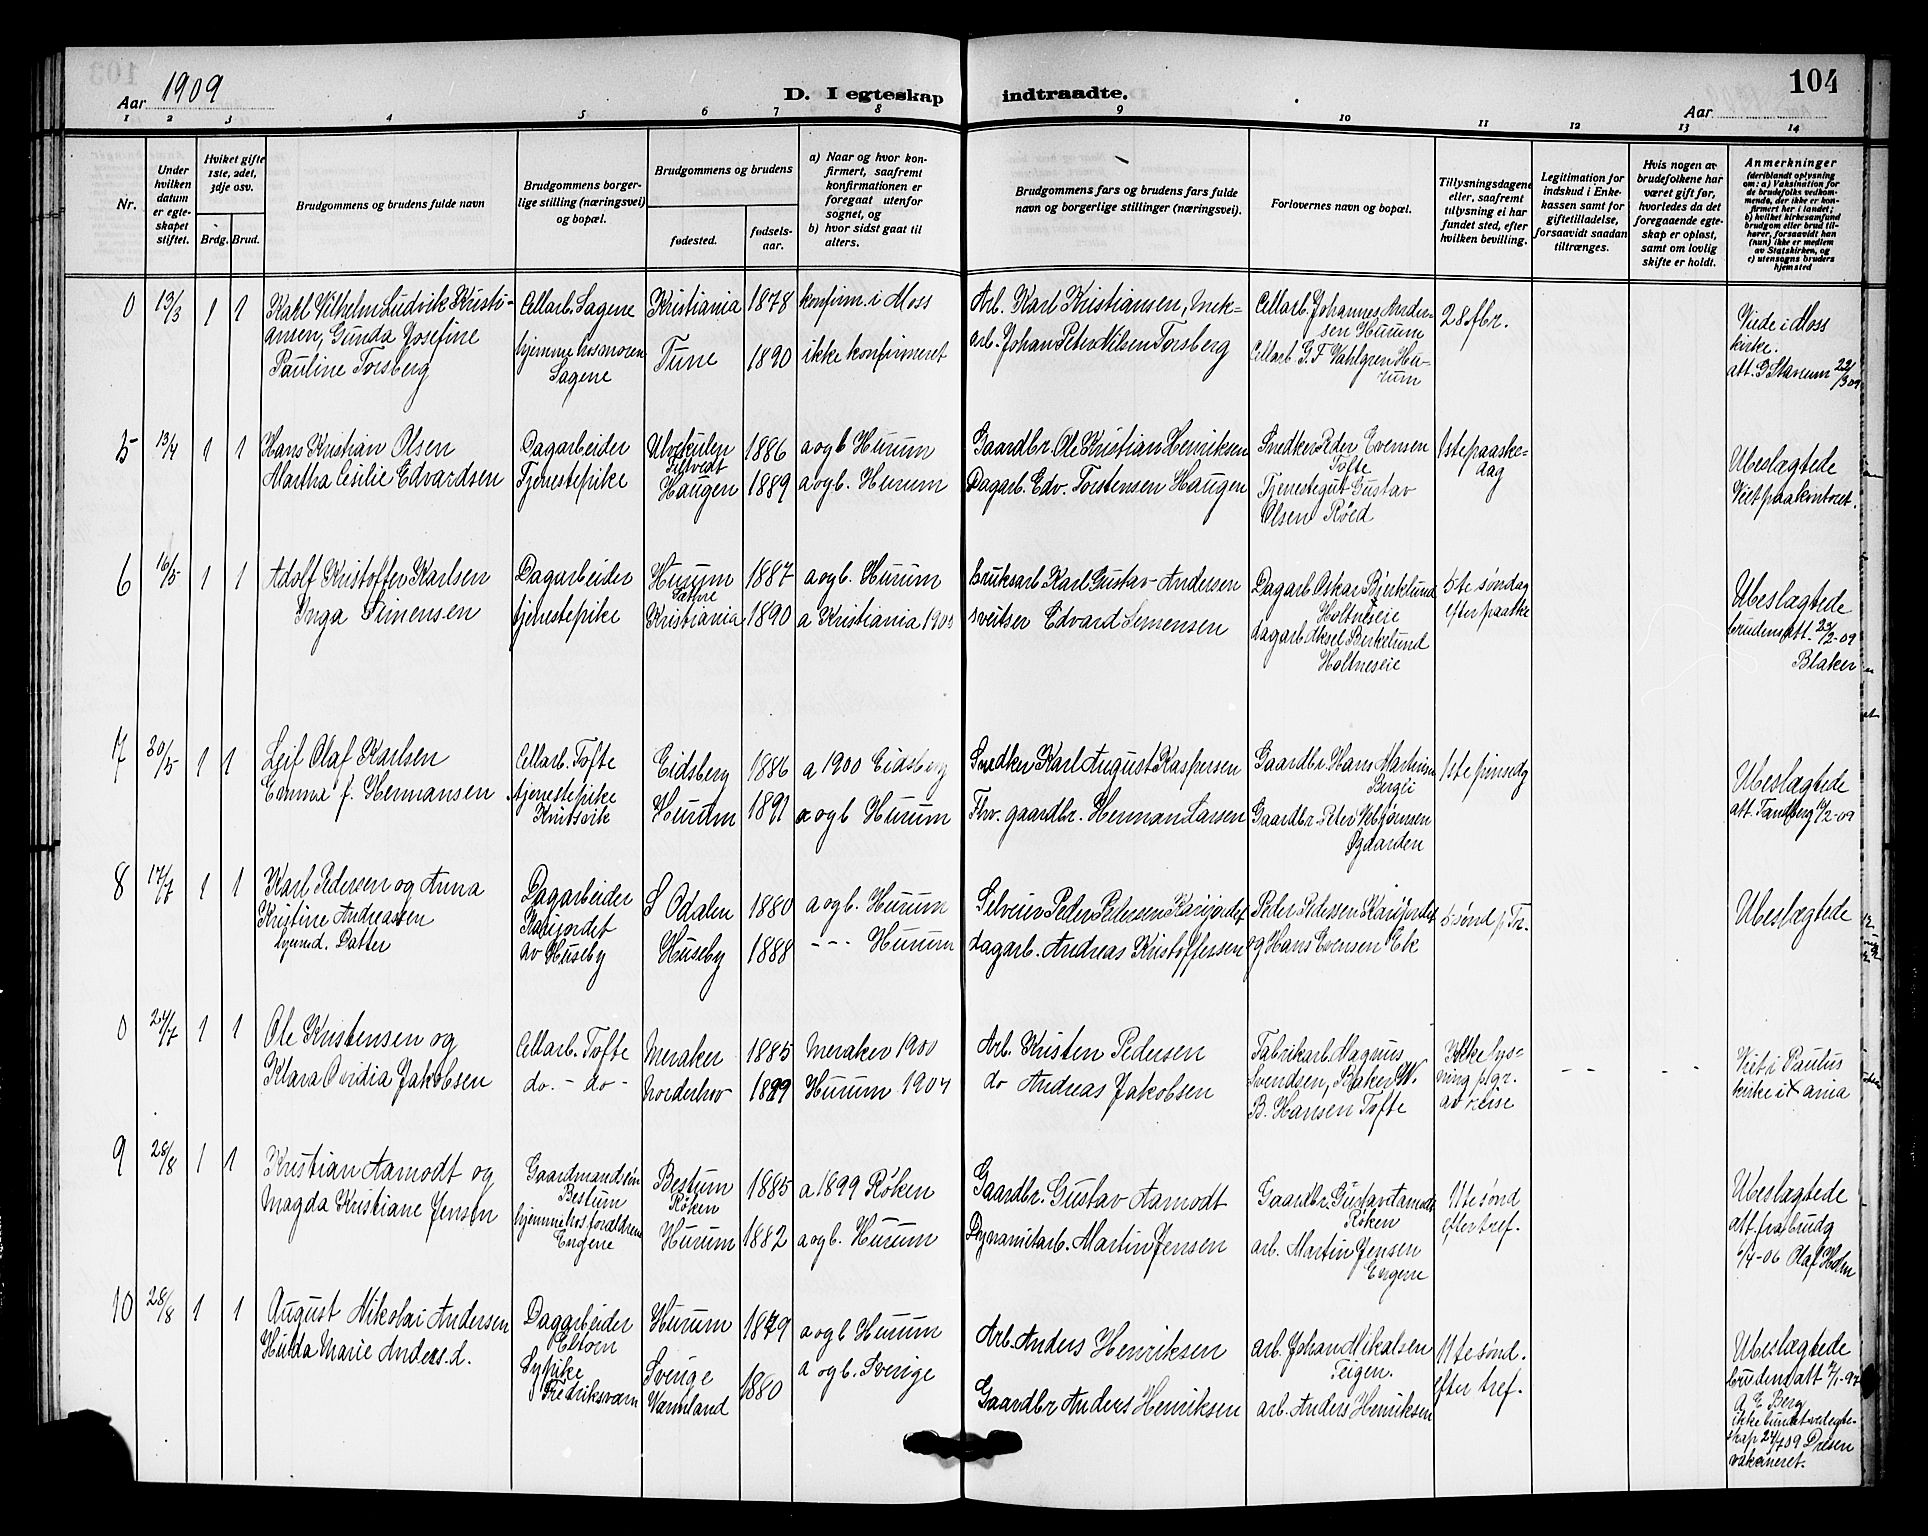 Aar 1909
D. I egteskap indtraadte.
104
Aar
1 2 3 4 5 6 7 8 9 10 11 12 13 14
Nr.
Under hvilken datum er egteskapet stiftet.
Hvilket gifte 1ste, 2det, 3dje osv.
Brdg. Brud.
Brudgommens og brudens fulde navn
Brudgommens borgerlige stilling (næringsvei) og bopæl.
Brudgommens og brudens
fødested.
fødselsaar.
a) Naar og hvor konfirmert, saafremt konfirmationen er foregaat utenfor sognet, og
b) hvor sidst gaat til alters.
Brudgommens fars og brudens fars fulde navn og borgerlige stillinger (næringsvei).
Forlovernes navn og bopæl.
Tillysningsdagene eller, saafremt tillysning ei har fundet sted, efter hvilken bevilling.
Legitimation for indskud i Enkekassen samt for giftetilladelse, forsaavidt saadan tiltrænges.
Hvis nogen av brudefolkene har været gift før, hvorledes da det foregaaende egteskap er opløst, samt om lovlig skifte er holdt.
Anmerkninger (deriblandt oplysning om: a) Vaksination for de brudefolks vedkommende, der ikke er konfirmert her i landet; b) hvilket kirkesamfund brudgom eller brud tilhører, forsaavidt han (hun) ikke er medlem av Statskirken, og c) utensogns bruders hjemsted
0 13/3 1 1
Karl Vilhelm Ludvik Kristiansen, Gunda Josefine
Pauline Torsberg
Cellarb. Sagene
hjemme hos moren
Sagene
Kristiania 1878 konfirm. i Moss
Tune 1890 ikke konfirmeret
Arb. Karl Kristiansen, Mek=
arb. Johan Peter Nilsen Torsberg
Cellarb. Johannes Andersen Hurum
Cellarb. G. F. Vahlgren Hurum
28 Fbr.
Viede i Moss
kirke.
att. G Stanum 22/3 09
5 13/4 1 1
Hans Kristian Olsen
Martha Cesilie Edvardsen
Dagarbeider
Tjenestepike
Tiltvedt
Haugen
1886 a og b Hurum
1889 a og b. Hurum
Gaardbr. Ole Kristian Henriksen
Dagarb. Edv. Torstensen Haugen
Snedker Peder Evensen
Tofte
Tjenestegut Gustav
Olsen Røed
1ste paaskedag
Ubeslægtede
Viet paa kontoret.
6 16/5 1 1
Adolf Kristoffer Karlsen
Inga Simensen
Dagarbeider
tjenestepike
Hurum
Sætre
Kristiania
1887 a og b. Hurum
1890 a Kristiania 1905
bruksarb. Karl Gustav Andersen
sveitser Edvard Simensen
Dagarb Oskar Bjerklund
Holtneseie
dagarb. Aksel Birkelund
Holtneseie
5te søndag
efter paaske
Ubeslægtede
brudens att. 22/2-09
Blaker
7 30/5 1 1
Leif Olaf Karlsen
Emma f. Hermansen
Cellarb. Tofte
tjenestepike
Knivsvik
Eidsberg 1886 a 1900 Eidsberg
Hurum 1891 a og b Hurum
Snedker Karl August Kaspersen
Fhv. gaardbr. Herman Larsen
Gaardbr. Hans Martinsen
Bergli
Gaardbr. Peter Abjørnsen
Øgaarden
1ste pinsedg
Ubeslægtede
att. Tandberg 10/2-09
8 17/7 1 1
Karl Pedersen og Anna
Kristine Andreassen
hjemd. Datter
Dagarbeider
Karijordet
av Huseby
S Odalen 1880 a og b. Hurum
Huseby 1888 --- Hurum
Selveier Peder Pedersen Karijordet
dagarb. Andreas Kristoffersen
Peder Pedersen Karijordet
og Hans Evensen Ek
5 sønd p. Tr.
Ubeslægtede
0 24/7 1 1
Ole Kristensen og
Klara Ovidia Jakobsen
Cellarb. Tofte
do. - do -
Meraker 1885 Meraker 1900
Norderhov 1889 Hurum 1904
Arb. Kristen Pedersen
do Andreas Jakobsen
Fabrikarb. Magnus
Svendsen, Baker W.
B. Hansen Tofte
Ikke lysning pgr.
av reise
-- --
Viet i Paulus
kirke i X ania
9 28/8 1 1
Kristian Aamodt og
Magda Kristiane Jensen
Gaardmandsøn
Bestum
hjemme hos forældrene
Engene
Bestum
Røken
Hurum
1885 a. 1899 Røken
1882 a og b. Hurum
Gaardbr. Gustav Aamodt
Dynamitarb. Martin Jensen
Gaardbr. Gustav Aamodt
Røken
arb. Martin Jensen
Engene
11te sønd
efter tref.
Ubeslægtede
att fra brudg
6/4-06 Olaf Holm
10 28/8 1 1
August Nikolai Andersen
Hulda Marie Anders.d.
Dagarbeider
Sypike
Fredriksvarn
Hurum 1879 a og b Hurum
Sverige
Værmland
1880 a og b. Sverige
Arb. Anders Henriksen
Gaardbr Anders Henriksen
arb. Johan Mikalsen
Teigen.
arb. Anders Henriksen
11te sønd.
efter tref.
Ubeslægtede
brudens att 7/1-97
A E Berg
ikke bundet ved egteskap 24/7 09 Presen
vakcineret.